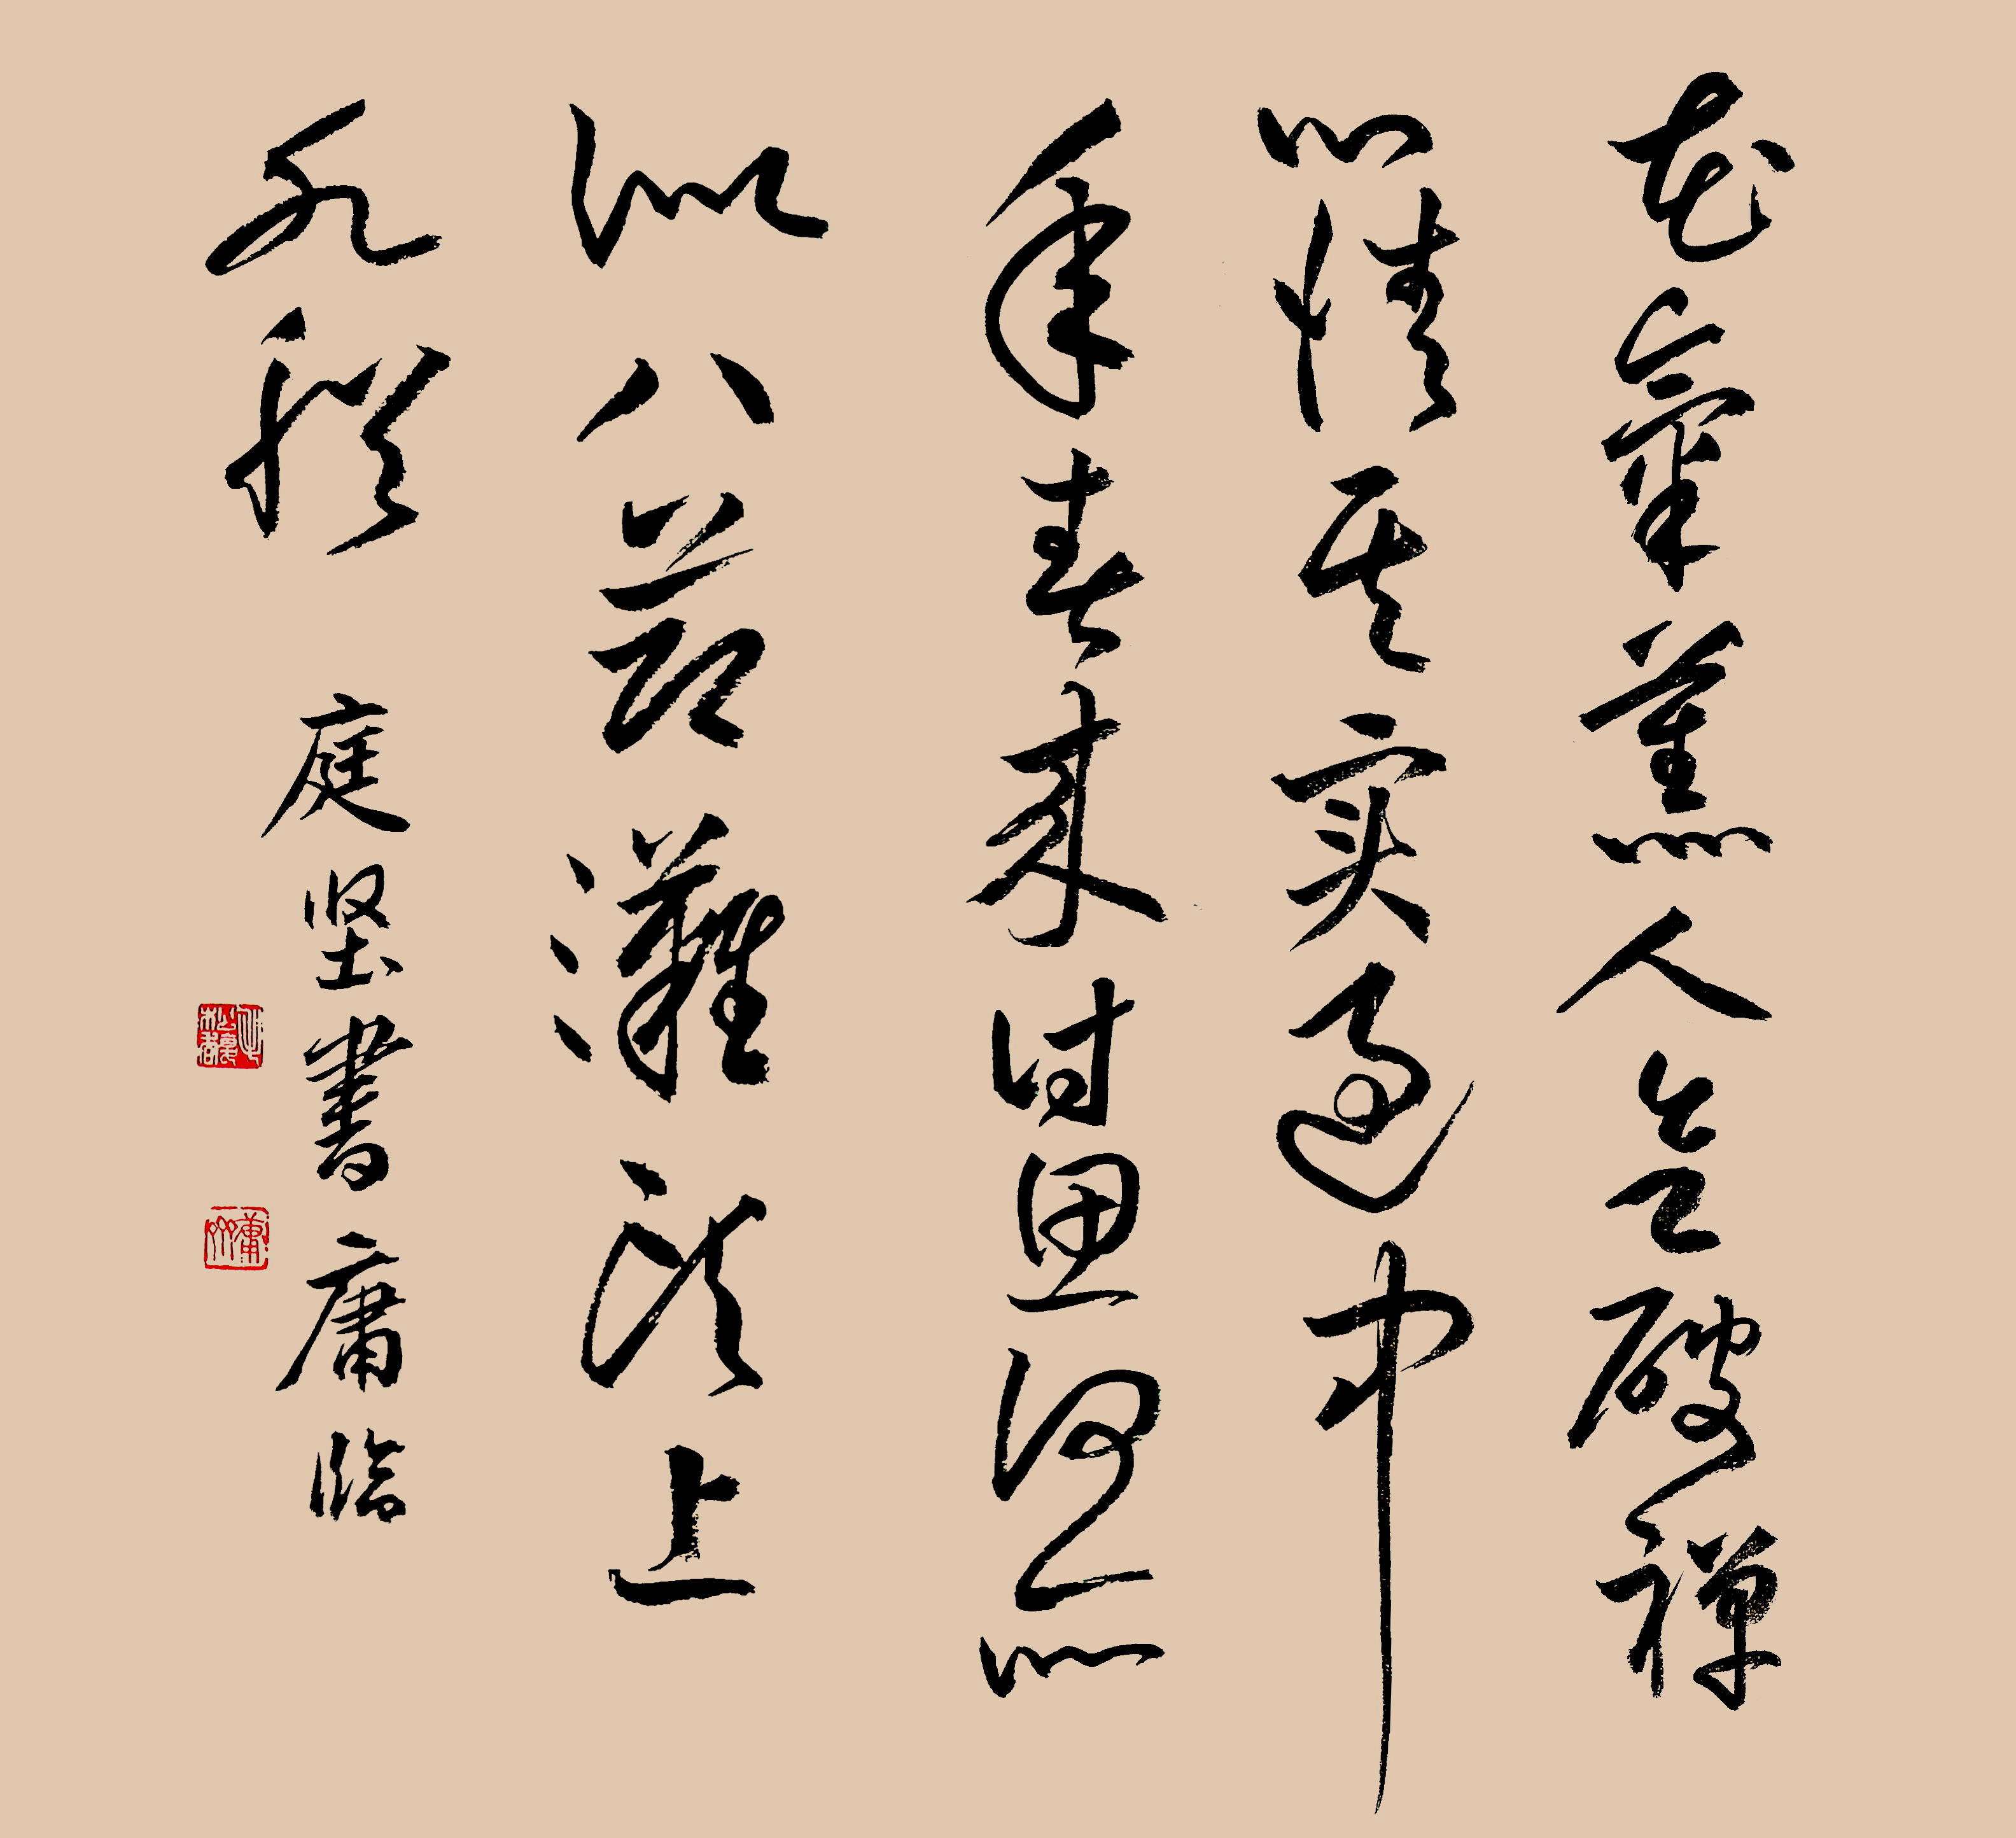 花氣薰人欲破禪
心情其实過中
年春来詩思何所
似八節灘頭上
水船 庭坚書 庸临